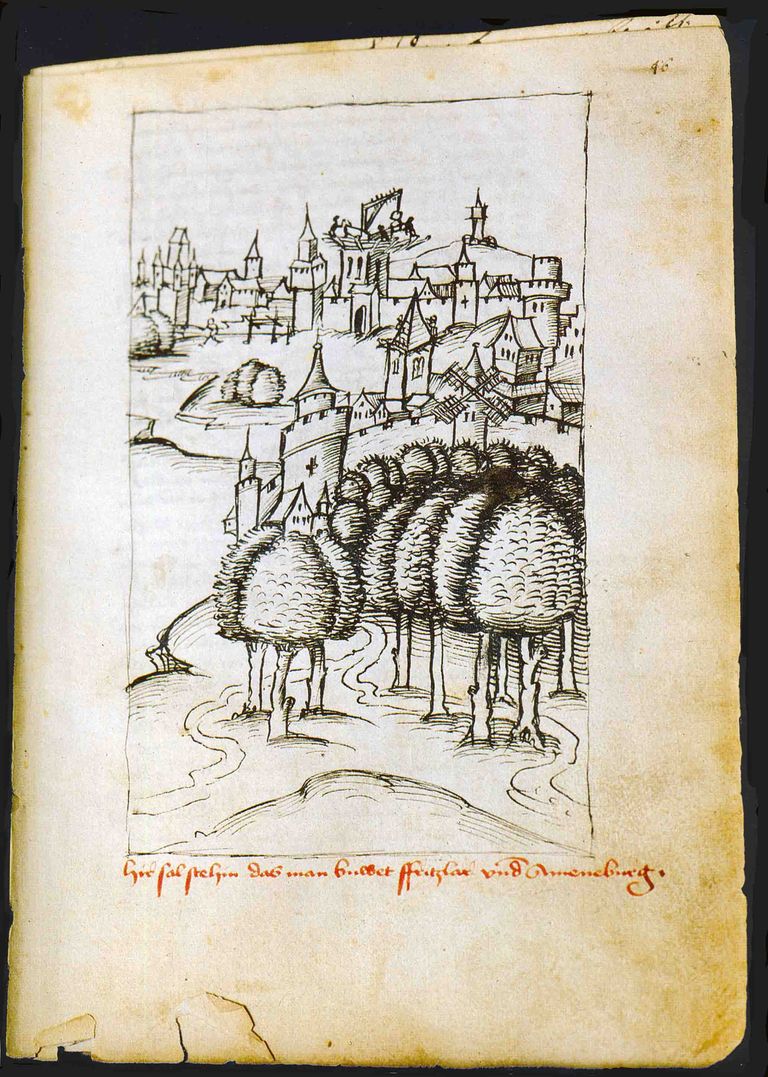 46
hir sal stehin das man buwet ffritzlar vnd Ameneburg.